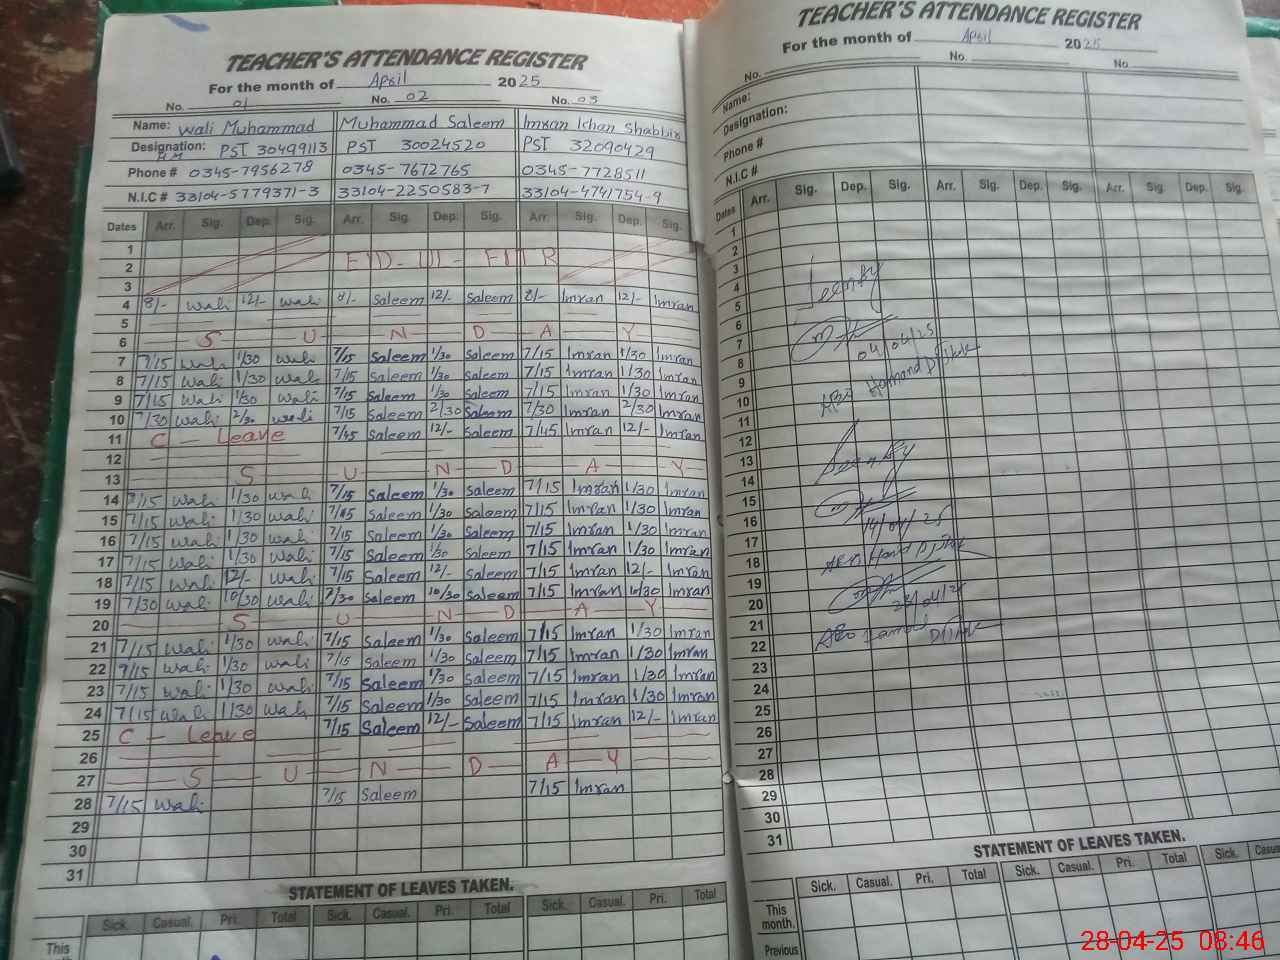 TEACHER'S ATTENDANCE REGISTER
For the month of April 2025
No. 01 No. 02 No. 03
Name: Wali Muhammad Muhammad Saleem Imran Khan Shabbir
Designation: PST 30499113 PST 30024520 PST 32090429
H.M
Phone # 0345-7956278 0345-7672765 0345-7728511
N.I.C # 33104-5779371-3 33104-2250583-7 33104-4741754-9
Dates Arr. Sig. Dep. Sig. Arr. Sig. Dep. Sig. Arr. Sig. Dep. Sig.
1
2 EID-UL-FITR
3
4 8/- Wali 12/- Wali 8/- Saleem 12/- Saleem 8/- Imran 12/- Imran
5
6 S U N D A Y
7 7/15 Wali 1/30 Wali 7/15 Saleem 1/30 Saleem 7/15 Imran 1/30 Imran
8 7/15 Wali 1/30 Wali 7/15 Saleem 1/30 Saleem 7/15 Imran 1/30 Imran
9 7/15 Wali 1/30 Wali 7/15 Saleem 1/30 Saleem 7/15 Imran 1/30 Imran
10 7/30 Wali 2/30 Wali 7/15 Saleem 2/30 Saleem 7/30 Imran 2/30 Imran
11 C - Leave 7/45 Saleem 12/- Saleem 7/45 Imran 12/- Imran
12
13 S U N D A Y
14 7/15 Wali 1/30 Wali 7/15 Saleem 1/30 Saleem 7/15 Imran 1/30 Imran
15 7/15 Wali 1/30 Wali 7/15 Saleem 1/30 Saleem 7/15 Imran 1/30 Imran
16 7/15 Wali 1/30 Wali 7/15 Saleem 1/30 Saleem 7/15 Imran 1/30 Imran
17 7/15 Wali 1/30 Wali 7/15 Saleem 1/30 Saleem 7/15 Imran 1/30 Imran
18 7/15 Wali 12/- Wali 7/15 Saleem 12/- Saleem 7/15 Imran 12/- Imran
19 7/30 Wali 10/30 Wali 7/30 Saleem 10/30 Saleem 7/15 Imran 10/30 Imran
20 S U N D A Y
21 7/15 Wali 1/30 Wali 7/15 Saleem 1/30 Saleem 7/15 Imran 1/30 Imran
22 7/15 Wali 1/30 Wali 7/15 Saleem 1/30 Saleem 7/15 Imran 1/30 Imran
23 7/15 Wali 1/30 Wali 7/15 Saleem 1/30 Saleem 7/15 Imran 1/30 Imran
24 7/15 Wali 1/30 Wali 7/15 Saleem 1/30 Saleem 7/15 Imran 1/30 Imran
25 C - Leave 7/15 Saleem 12/- Saleem 7/15 Imran 12/- Imran
26
27 S U N D A Y
28 7/15 Wali 7/15 Saleem 7/15 Imran
29
30
31
STATEMENT OF LEAVES TAKEN.
Sick. Casual. Pri. Total Sick. Casual. Pri. Total Sick. Casual. Pri. Total
This
TEACHER'S ATTENDANCE REGISTER
For the month of April 2025
No. No. No.
Name:
Designation:
Phone #
N.I.C #
Dates Arr. Sig. Dep. Sig. Arr. Sig. Dep. Sig. Arr. Sig. Dep. Sig.
1
2
3
4
5
6
7 04/04/25
8
9
10
11
12
13
14
15
16 14/04/25
17
18
19
20
21
22
23
24
25
26
27
28
29
30
31
STATEMENT OF LEAVES TAKEN.
Sick. Casual. Pri. Total Sick. Casual. Pri. Total Sick.
This
month.
Previous
28-04-25 08:46